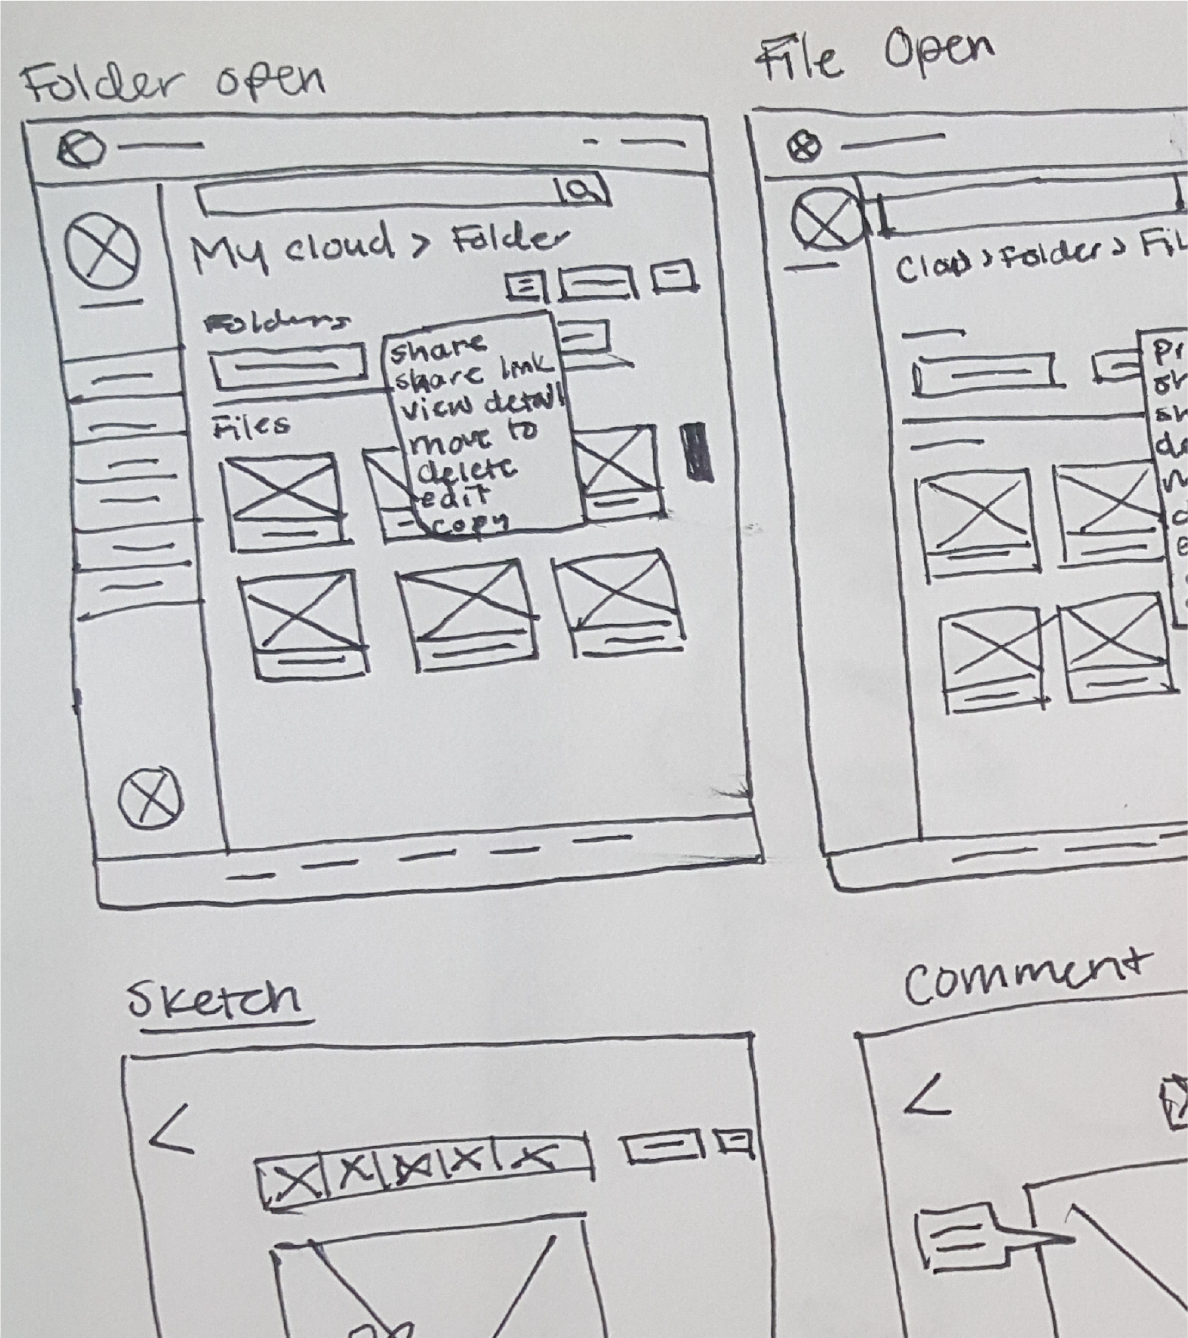 Folder open
My cloud > Folder
Folders
share
share link
view detail
move to
delete
edit
copy
Files
File Open
Cloud > Folder > Fil
Pr
sh
de
m
d
e
Sketch
Comment